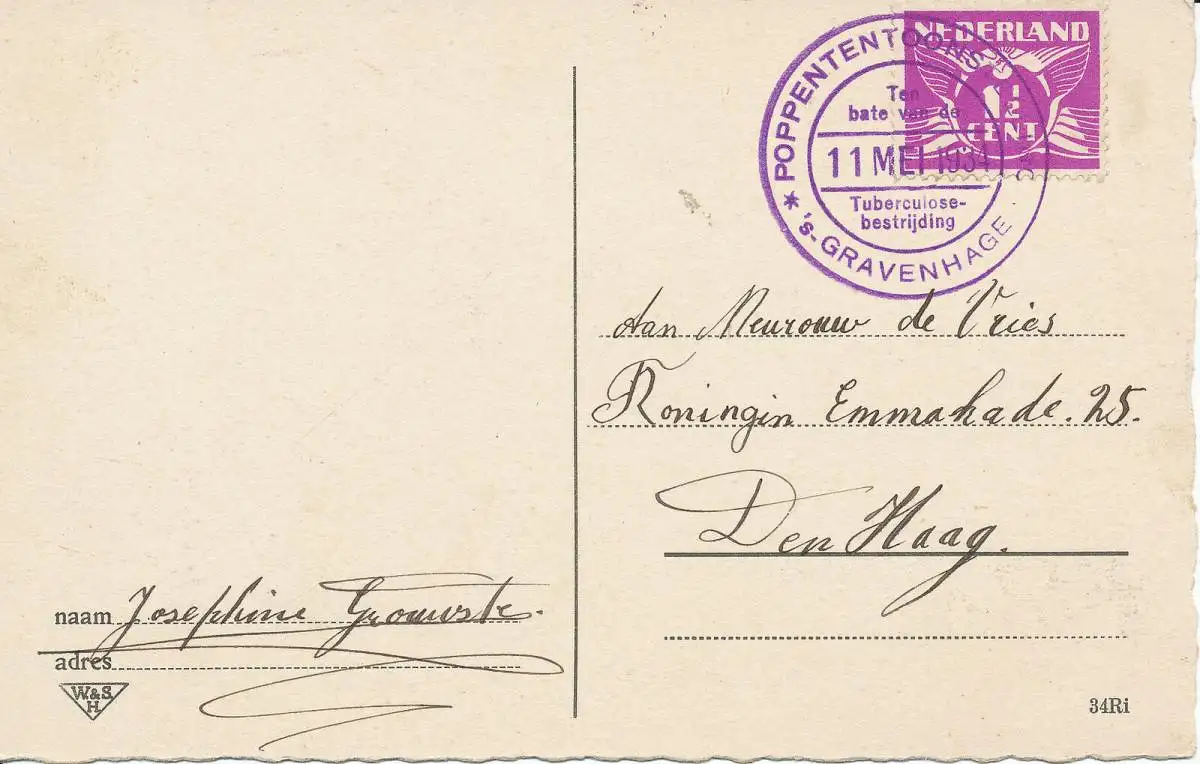 NEDERLAND
1½
CENT
POPPENTENTOONS
Ten
bate van de
11 MEI 1934
Tuberculose-
bestrijding
* 's-GRAVENHAGE
Aan Meurouw de Vries
Koningin Emmakade. 25.
Den Haag.
naam Josephine
adres
W.&S.
H.
34Ri